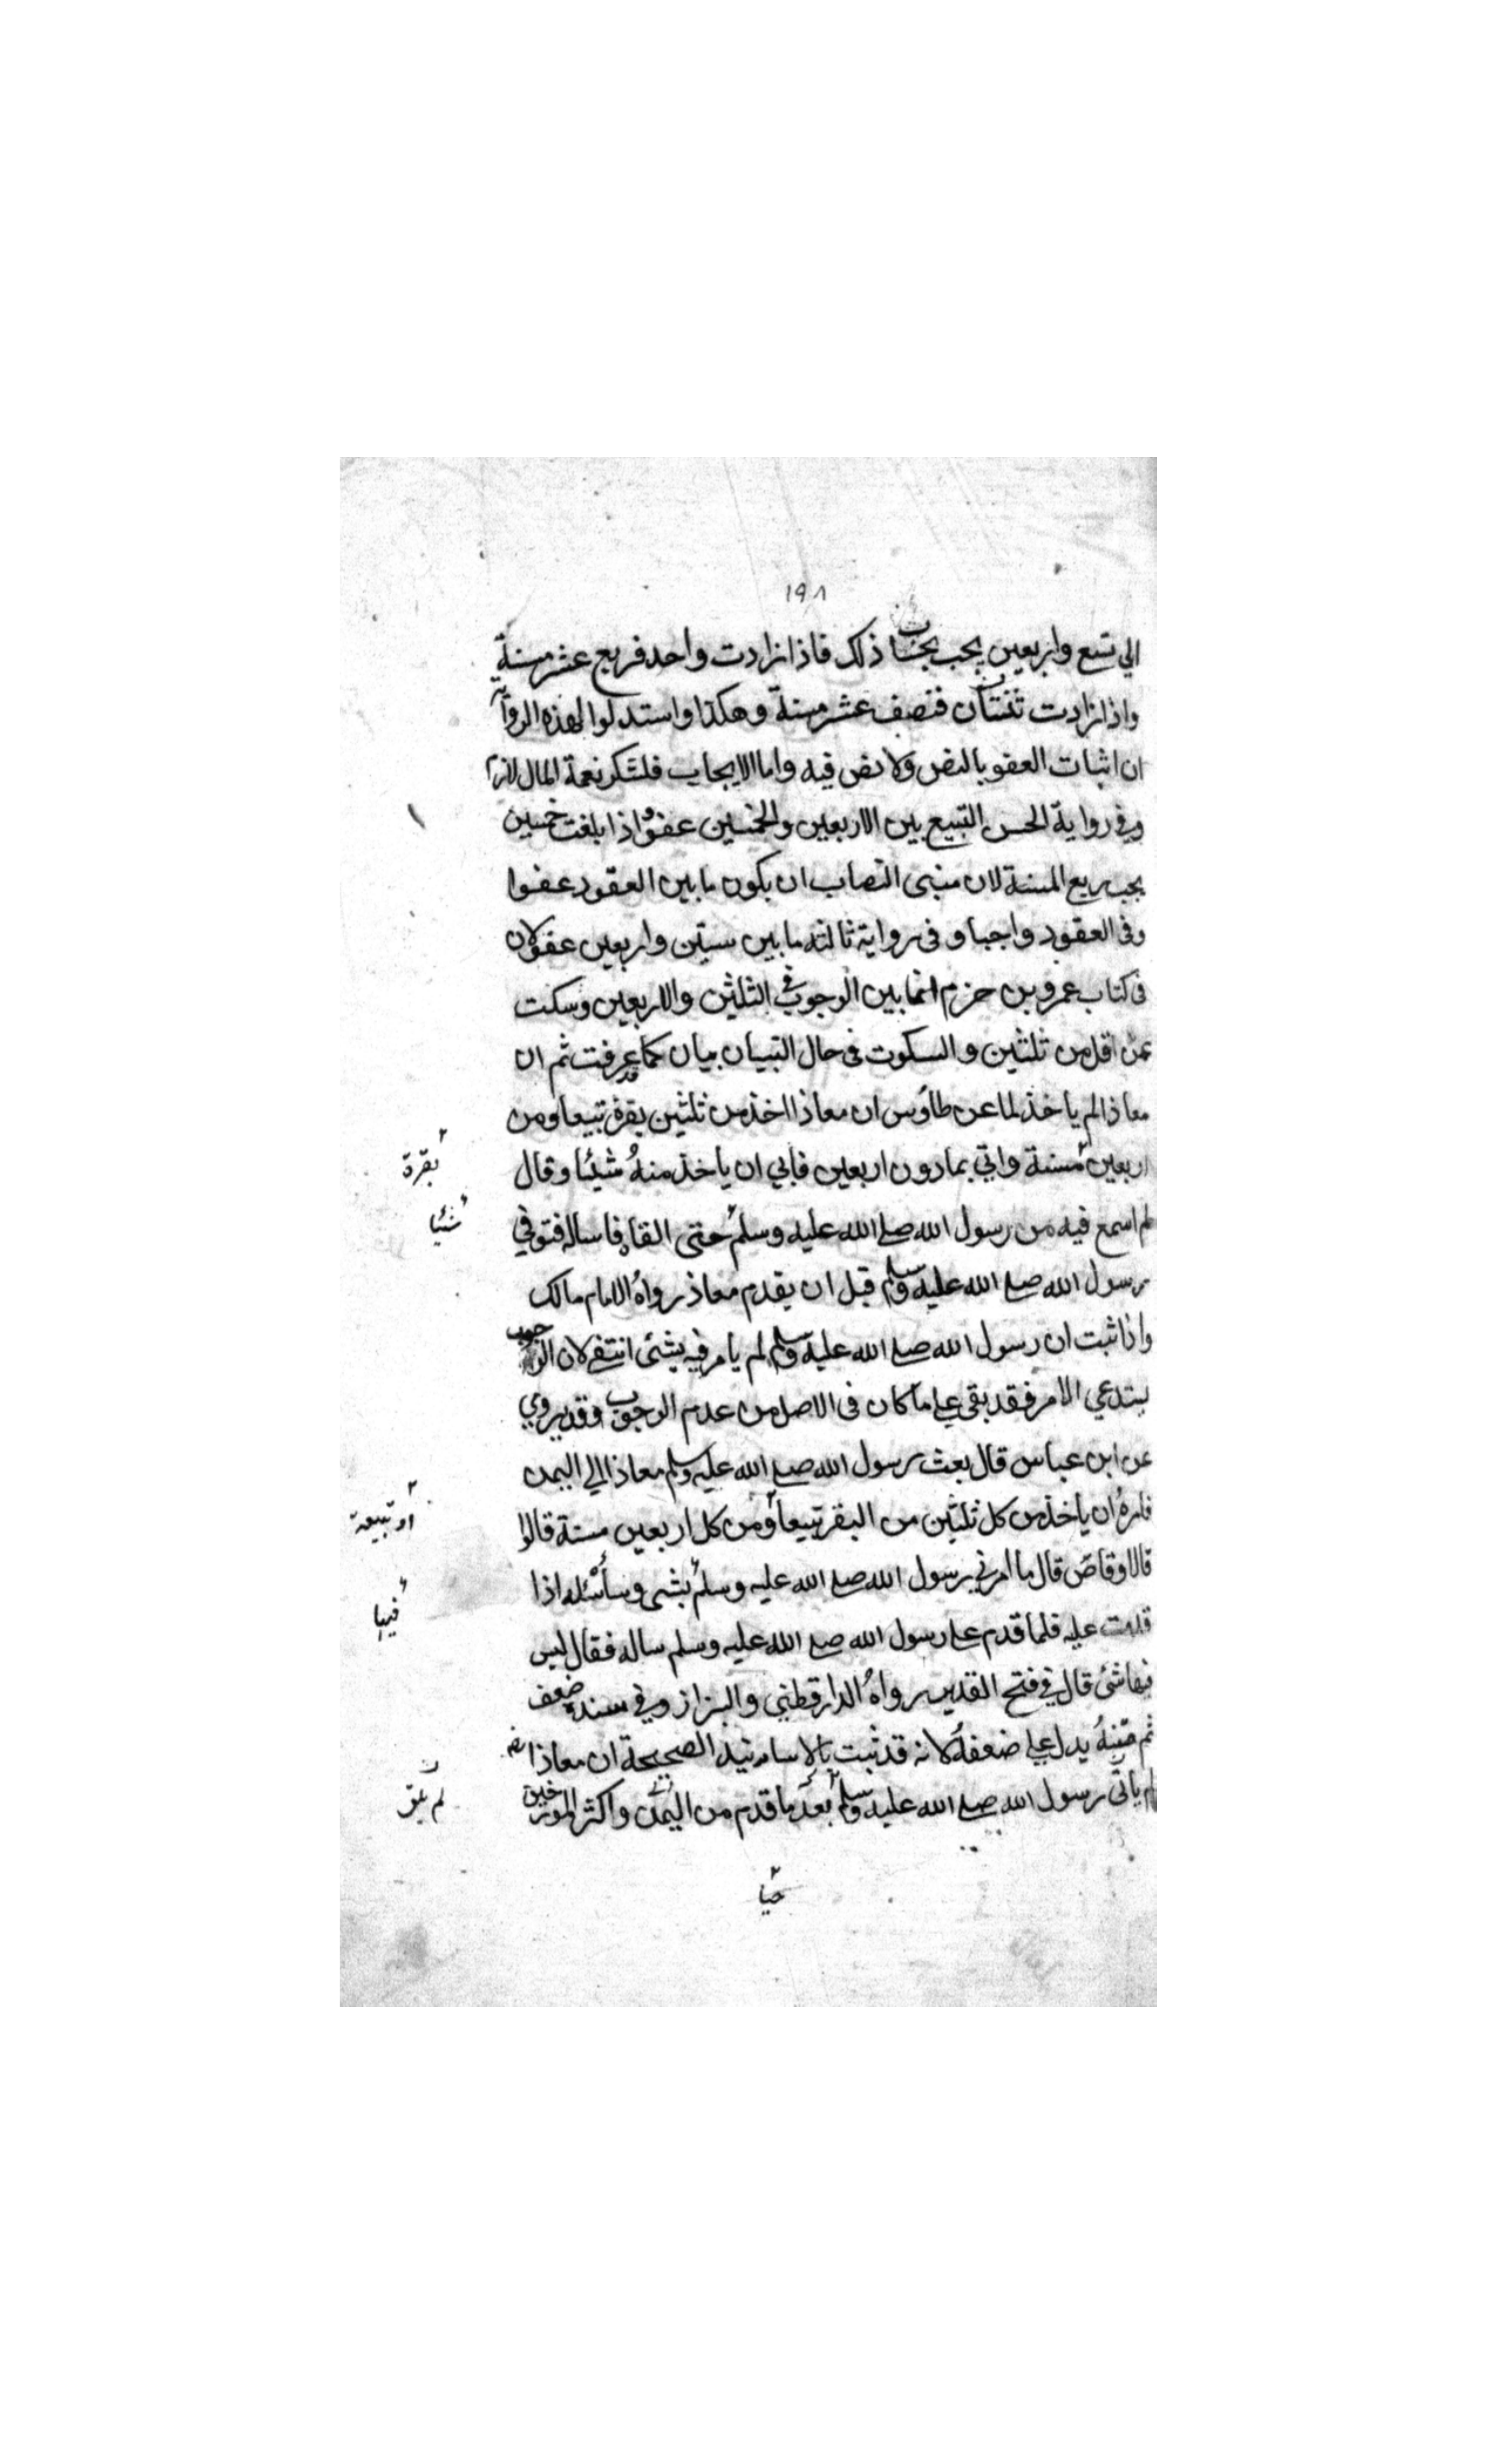 ١٩٨
الي تسع واربعين يجب بحساب ذلك فاذا زادت واحد فربع عشر مسنة
واذا زادت ثنتان فنصف عشر مسنة وهكذا واستدلوا لهذه الرواية
ان اثبات العفو بالنص ولا نص فيه واما الايجاب فلشكر نعمة المال لازم
وفي رواية الحسن التبيع بين الاربعين والخمسين عفو اذا بلغت خمسين
يجب ربع المسنة لان مبنى النصاب ان يكون ما بين العقود عفوا
وفى العقود واجبا وفى رواية ثالثه ما بين ستين واربعين عفو لان
فى كتاب عمرو بن حزم انما بين الوجوب في الثلثين والاربعين وسكت
عمن اقل من ثلثين والسكوت فى حال التبيان بيان كما عرفت ثم ان
معاذا لم ياخذ لما عن طاؤس ان معاذا اخذ من ثلثين بقرة تبيعا ومن
اربعين مسنة واتي بما دون اربعين فابي ان ياخذ منهُ شيئا وقال
بقرة
لم اسمع فيه من رسول الله صلے الله عليه وسلم حتى القاه فاساله فتوفي
شئيا
رسول الله صلے الله عليه وسلم قبل ان يقدم معاذ رواهُ الامام مالك
واذا ثبت ان رسول الله صلے الله عليه وسلم لم يامر فيه بشئ انتفے لان الوجوب
يستدعي الامر فقد بقى علے ما كان فى الاصل من عدم الوجوب وقد يروي
عن ابن عباس قال بعث رسول الله صلے الله عليه وسلم معاذا الي اليمن
فامرهُ ان ياخذ من كل ثلثين من البقر تبيعا ومن كل اربعين مسنة قالوا
او تبيعة
فالاوقاص قال ما امرني رسول الله صلے الله عليه وسلم بشى وسأسئله اذا
فيها
قدمت عليه فلما قدم علے رسول الله صلے الله عليه وسلم ساله فقال ليس
فيها شئ قال في فتح القدير رواهُ الدارقطني والبزاز وفي سنده ضعف
ثم متنهُ يدل علے ضعفه لانه قد ثبت بالاسانيد الصحيحة ان معاذا
لم ياتى رسول الله صلے الله عليه وسلم بعد ما قدم من اليمن واكثر المورخين
لم يلق
حيا